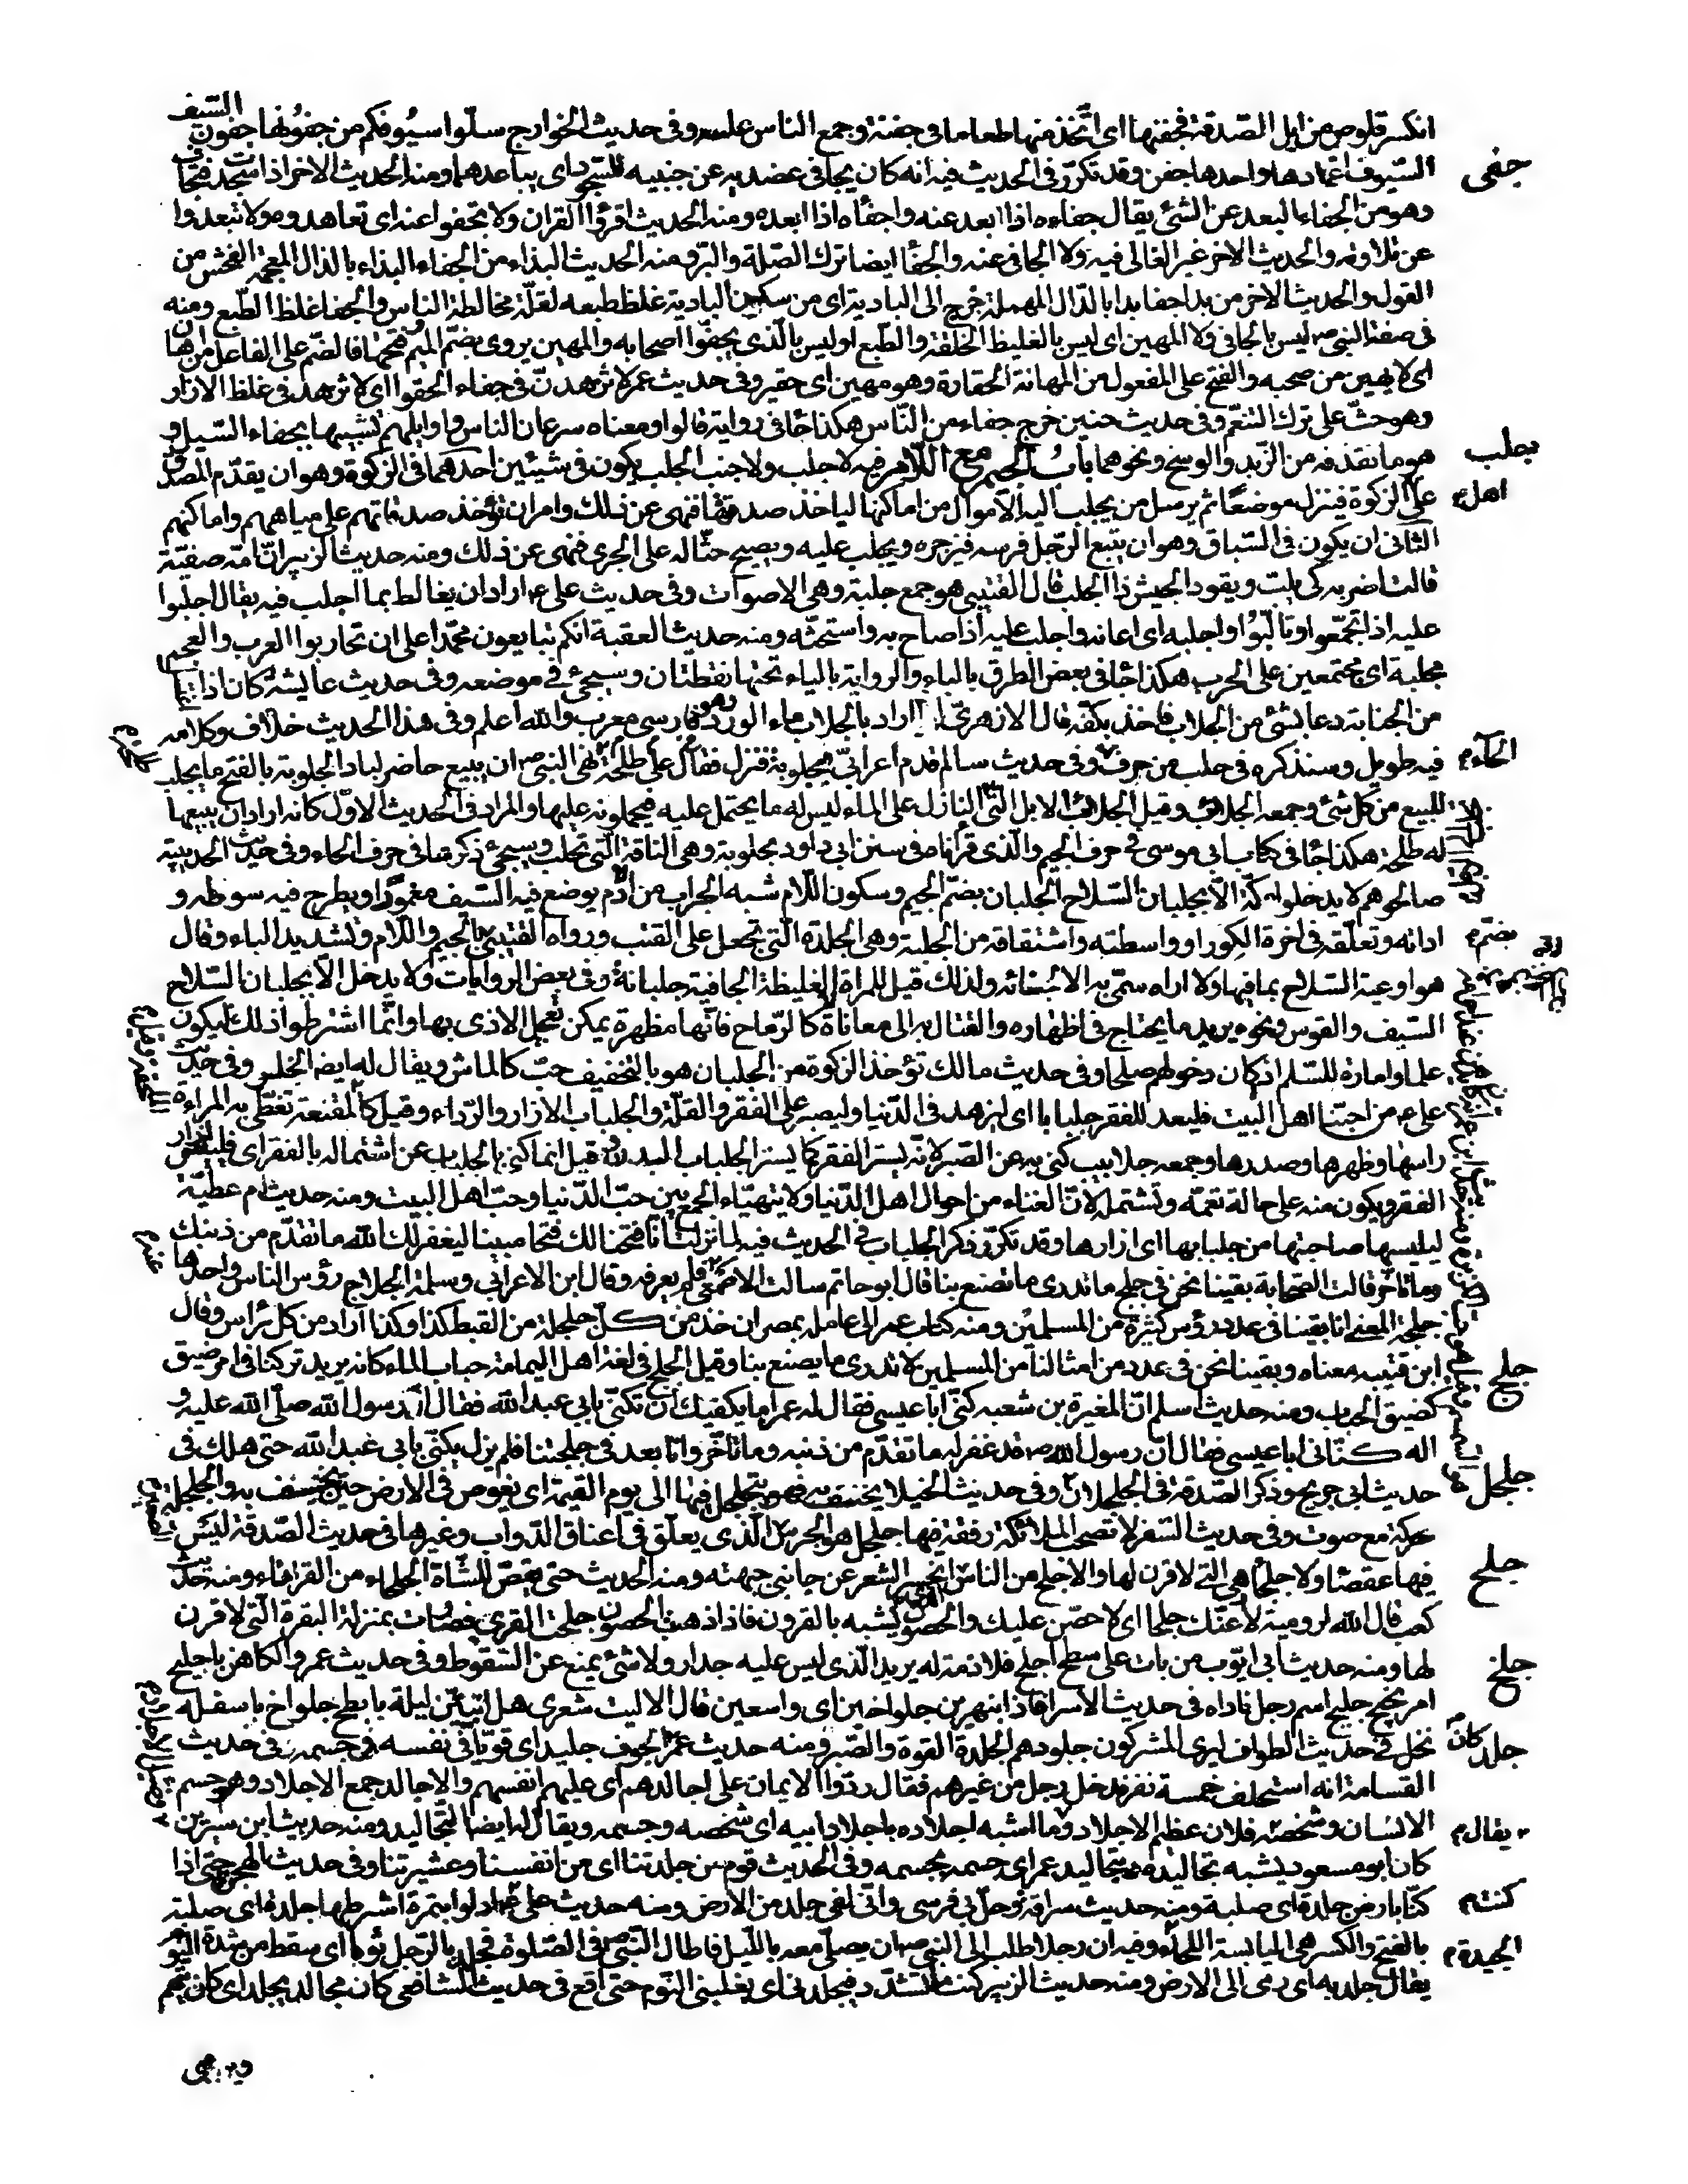 انكسر قلوص من ابل الصّدقة فجفنها اى اتّخذ منها طعاما فى جفنة وجمع الناس عليه وفى حديث الخوارج سلّوا سيُوفكم من جفُونها جفون
السّيوف اغمادها واحدها جفن وقد تكرّر فى الحديث فيه انه كان يجافى عضديه عن جنبيه للسّجود اى يباعدهما ومنه الحديث الاخر اذا سجدت فتجاف
جفى
وهو من الجفاء البعد عن الشئ يقال جفاه اذا بعد عنه واجفاه اذا ابعده ومنه الحديث اقرؤا القران ولا تجفوا عنه اى تعاهدوه ولا تبعدوا
عن تلاوته والحديث الاخر غير الغالى فيه ولا الجافى عنه والجفا ايضا ترك الصّلة والبرّ ومنه الحديث البذاء من الجفاء البذاء بالذال المعجمة الفحش من
القول والحديث الاخر من بدا جفا بدا بالدّال المهملة خرج الى البادية اى من سكن البادية غلظ طبعه لقلّة مخالطة الناس والجفا غلظ الطّبع ومنه
فى صفة النبى ص ليس بالجافى ولا المهين اى ليس بالغليظ الخلقة والطّبع او ليس بالّذى يجفوا اصحابه والمهين يروى بضمّ الميم وفتحها فالضّم على الفاعل من اهان
اى لا يهين من صحبه والفتح على المفعول من المهانة الحقارة وهو مهين اى حقير وفى حديث عمر لا تزهدنّ فى جفاء الحقو اى لا تزهد فى غلظ الازار
وهو حثّ على ترك التنعّم وفى حديث حنين خرج جفاء من النّاس هكذا جا فى رواية قالوا ومعناه سرعان الناس واوايلهم تشبيها بجفاء السّيل و
هو ما يقذفه من الزّبد والوسخ ونحوهما بابُ الجيم مع اللّام فيه لا جلب ولا جنب الجلب يكون فى شيئين احدهما فى الزكوة وهو ان يقدّم المصدّق
جلب
على الزكوة فينزل موضعًا ثم يرسل من يجلب اليه الاموال من اماكنها لياخذ صدقتها فنهى عن ذلك وامر ان تؤخذ صدقاتهم على مياههم واماكنهم
اهل م
الثانى ان يكون فى السّباق وهو ان يتبع الرّجل فرسه فيزجره ويجلب عليه ويصيح حثّا له على الجرى فنهى عن ذلك ومنه حديث الزبير انّ امّه صفيّة
قالت اضربه كى يلبّ ويقود الجيش ذا الجلب قال القتيبى هو جمع جلبة وهى الاصوات وفى حديث على ع اراد ان يغالط بما اجلب فيه يقال اجلبوا
عليه اذا تجمّعوا وتالّبوا واجلبه اى اعانه واجلب عليه اذا صاح به واستحثّه ومنه حديث العقبة انكم تبايعون محمّدا على ان تحاربوا العرب والعجم
مجلبة اى مجتمعين على الحرب هكذا جا فى بعض الطرق بالباء والرواية بالياء تحتها نقطتان وسيجئ فى موضعه وفى حديث عايشة كان اذا
من الجنابة دعا بشئ من الجلاب فاخذ بكفّه قال الازهرى اراد بالجلاب ماء الورد وهو فارسى معرب والله اعلم وفى هذا الحديث خلاف وكلام
فيه طويل وسنذكره فى حلب من حرف وفى حديث سالم قدم اعرابىّ بجلوبة فنزل فقال على طلحة نهى النبى ص ان يبيع حاضر لباد الجلوبة بالفتح ما يجلب
الحاء م
للبيع من كل شئ وجمعه الجلائب وقيل الجلائب الابل التى النازل على الماء ليس له ما يحتمل عليه فيحملونه عليها والمراد فى الحديث الاوّل كانه اراد ان يبيعها
له طلحة هكذا جا فى كتاب ابى موسى فى حرف الجيم والّذى قراناه فى سنن ابى داود بحلوبة وهى الناقة الّتى تحلب وسيجئ ذكرها فى حرف الحاء وفى حديث الحديبية
صالحوهم لا يدخلوا مكّة الّا بجلبان السّلاح الجلبان بضمّ الجيم وسكون اللّام شبه الجراب من ادم يوضع فيه السّيف مغمودًا ويطرح فيه سوطه و
اداته وتعلّقه فى اخرة الكور او واسطته واشتقاقه من الجلبة وهى الجلدة الّتى تجعل على القتب ورواه القتيبى بالجيم واللّام وتشديد الباء وقال
بضمّ م
هو اوعية السّلاح بما فيها ولا اراه سمّى به الا لجفائه ولذلك قيل للمراة الغليظة الجافية جلبانة وفى بعض الروايات ولا يدخل الّا بجلبان السّلاح
السّيف والقوس ونحوه يريد ما يحتاج فى اظهاره والقتال به الى معاناة كالرّماح فانّها مظهرة يمكن تعجيل الاذى بها وانّما اشترطوا ذلك ليكون
علما وامارة للسّلم اذ كان دخولهم صلحا وفى حديث مالك تؤخذ الزكوة من الجلبان هو بالتخفيف حبّ كالماش ويقال له ايضا الخلر وفى حديث
على ع من احبّنا اهل البيت فليعد للفقر جلبابا اى ليزهد فى الدّنيا وليصبر على الفقر والقلّة والجلباب الازار والرّداء وقيل كالمقنعة تغطّى به المراءة
راسها وظهرها وصدرها وجمعه جلابيب كنى به عن الصّبر لانّه يستر الفقر كما يستر الجلباب البدن وقيل انما كنى بالجلباب عن اشتماله بالفقر اى فليلبس ازار
الفقر ويكون منه على حالة تعمّه وتشتمله لانّ الغناء من احوال اهل الدّنيا ولا يتهيّاء الجمع بين حبّ الدّنيا وحبّ اهل البيت ومنه حديث ام عطيّة
لیلبسها صاحبتها من جلبابها اى ازارها وقد تكرّر ذكر الجلباب فى الحديث فيه لما نزلت انّا فتحنا لك فتحا مبينا ليغفر لك الله ما تقدّم من ذنبك
وما تاخّر قالت الصّحابة بقينا نحن فى جلج ما ندرى ما تصنع بنا قال ابو حاتم سالت الاصمعى فلم يعرفه وقال ابن الاعرابى وسلمة الجلاج رؤس الناس واحدها
جلجة المعنى انا بقينا فى عدد رؤس كثيرة من المسلمين ومنه كتاب عمر الى عامله بمصر ان خذ من كلّ جلجلة من القبط كذا وكذا اراد من كل راس وقال
ابن قتيبه معناه وبقينا نحن فى عدد من امثالنا من المسلمين لا ندرى ما يصنع بنا وقيل الجلج فى لغة اهل اليمامة حباب الماء كانه يريد تركنا فى امر ضيق
جلج
كضيق الحباب ومنه حديث اسلم انّ المغيرة بن شعبه كنّى ابا عيسى فقال له عمر اما يكفيك ان تكنّى بابى عبد الله فقال انّ رسول الله صلّى الله عليه و
اله كنّانى ابا عيسى فقال انّ رسول الله ص قد غفر له ما تقدّم من ذنبه وما تاخّر وانا بعد فى جلجتنا فلم يزل يكنّى بابى عبد الله حتى هلك فى
حديث ابى جريج وذكر الصّدقة فى الجلجلان وفى حديث الخيلا يخسف به فهو يتجلجل فيها الى يوم القيمة اى يغوص فى الارض حين يخسف به والجلجلة
جلجل
حركة مع صوت وفى حديث السّفر لا تصحب الملائكة رفقة فيها جلجل هو الجرس الّذى يعلّق فى اعناق الدّواب وغيرها فى حديث الصّدقة ليس
فيها عقصا ولا جلحا هى التى لا قرن لها والاجلح من الناس انحسر الشعر عن جانبى جبهته ومنه الحديث حتى يقتصّ للشّاة الجلحاء من القرناء ومنه حديث
جلح
كعب قال الله لرومية لادعنّك جلحا اى لا حصن عليك والحصون يشبه بالقرون فاذا ذهب الحصون جلحت القرى فصارت بمنزلة البقرة الّتى لا قرن
لها ومنه حديث ابى ايّوب من بات على سطح اجلح فلا ذمّة له يريد الّذى ليس عليه جدار ولا شئ يمنع عن السّقوط وفى حديث عمر والكاهن يا جليح
امر نجيح جليح اسم رجل ناداه فى حديث الاسرا فاذا بنهرين جلواخين اى واسعين قال الا ليت شعرى هل ابيتنّ ليلة بابطح جلواخ باسفله
جلخ
نخل فى حديث الطواف ليرى المشركون جلدهم الجلدة القوة والصّبر ومنه حديث عمر كان اجوف جليدا اى قويّا فى نفسه فى جسمه فى حديث
جلد
القسامة انه استحلف خمسة نفر فدخل رجل من غيرهم فقال ردّوا الايمان على اجالدهم اى عليهم انفسهم والاجالد جمع الاجلاد وهو جسم
الانسان وشخصه فلان عظيم الاجلاد وما اشبه اجلاده باجلاد ابيه اى شخصه وجسمه ويقال له ايضا التّجاليد ومنه حديث ابن سيرين
يقال م
كان ابو مسعود يشبه تجاليده بتجاليد عمر اى جسمه بجسمه وفى الحديث قوم من جلدتنا اى من انفسنا وعشيرتنا وفى حديث الهجرة حتى اذا
كنّا بارض جلدة اى صلبة ومنه حديث سراقة وحل بى فرسى وانّى لفى جلد من الارض ومنه حديث على ع ادلوا بتمرة اشترطها جلدة اى صلبة
كنت م
بالفتح والكسر هى اليابسة اللحاء وفيه ان رجلا طلب الى النبى ص ان يصلّى معه باللّيل فاطال النّبى ص فى الصّلوة فجلد بالرّجل نوما اى سقط من شدة النّوم
الجيدة م
يقال جلد به اى رمى الى الارض ومنه حديث الزبير كنت اتشدّد فيجلد بى اى يغلبنى النّوم حتى اقع فى حديث الشافعى كان مجالد يجلد اى كان يتهم